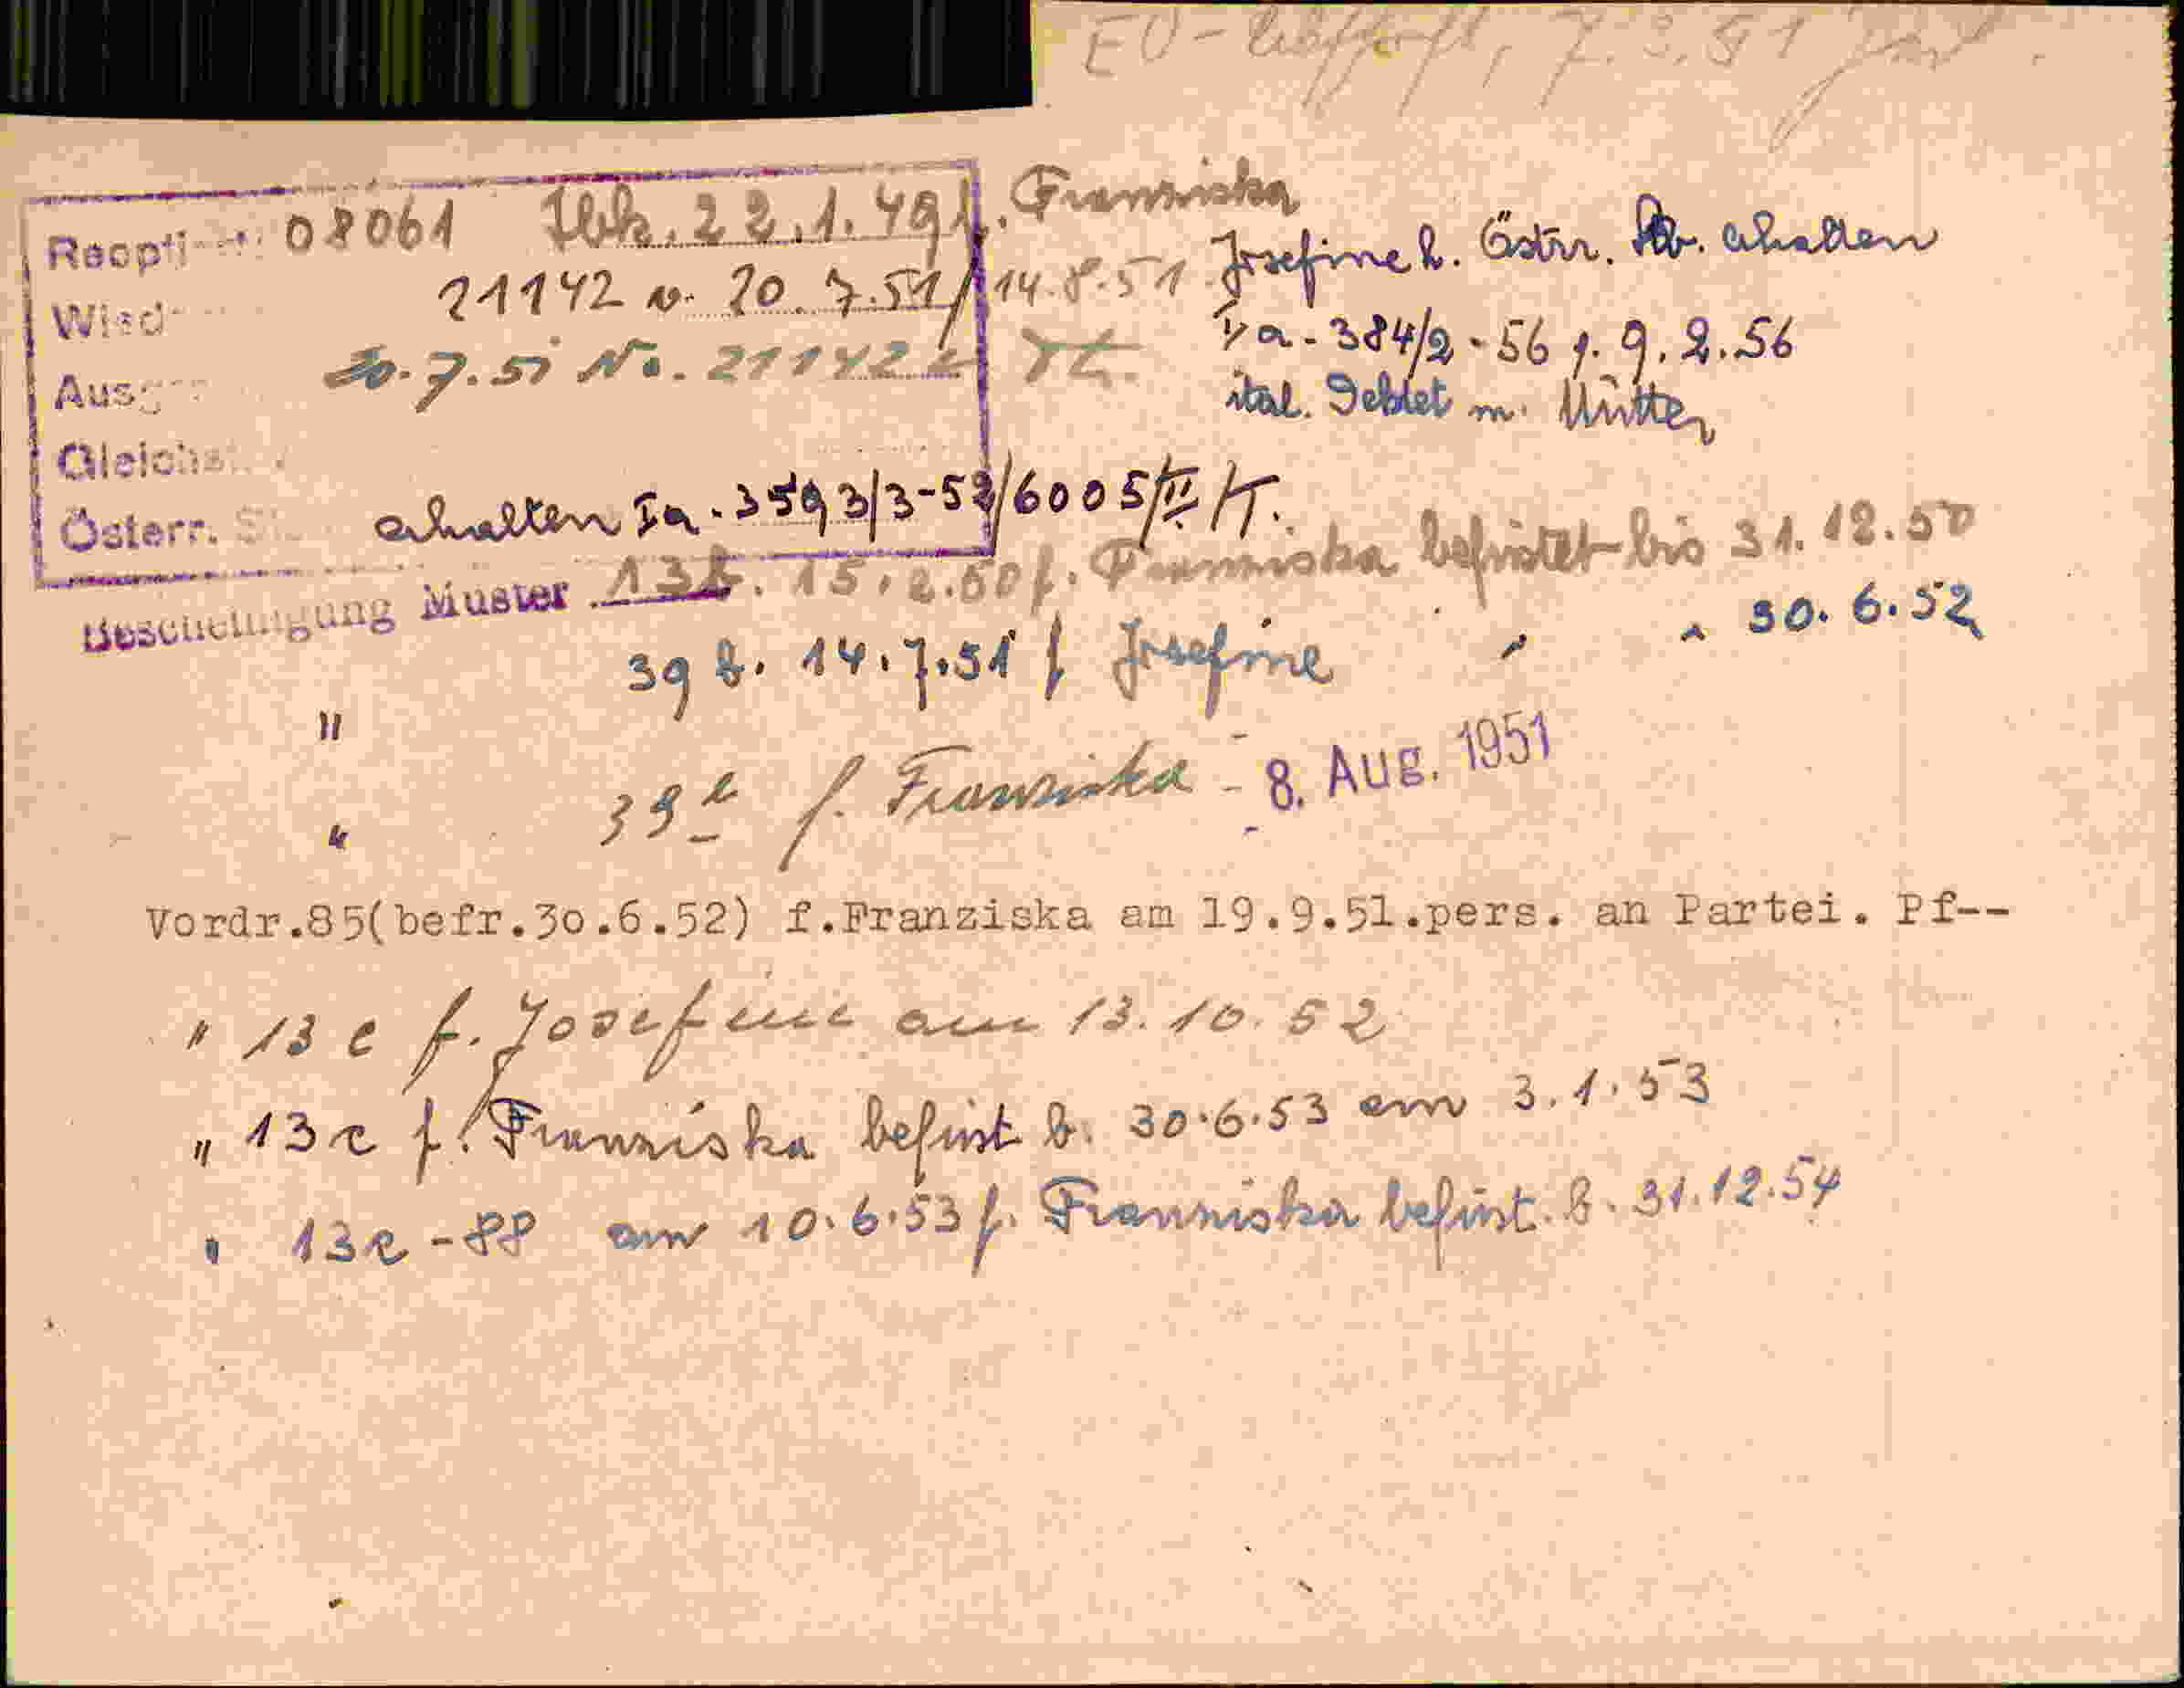 EU- 7.3.51
Reopti 08061 Ibk. 22.1.49 f. Franziska
Josefine h. Östrr. Stb. erhalten
Wied 21142 v. 20.7.51 / 14.8.51
Ia - 384/2 - 56 v. 9.2.56
Ausg 30.7.51 No. 21142
ital. Gebiet m. Mutter
Gleichst
Österr. St erhalten Ia - 3593/3-52/6005/II/T.
Bescheinigung Muster 13b. 15.2.50 f. Franziska befristet bis 31.12.50
" 39 b. 14.7.51 f Josefine " " 30.6.52
" 39 f. Franziska - 8. Aug. 1951
Vordr.85(befr.30.6.52) f.Franziska am 19.9.51.pers. an Partei. Pf--
" 13 c f. Josefine am 13.10.52
" 13c f. Franziska befrist b. 30.6.53 am 3.1.53
" 13c - 88 am 10.6.53 f. Franziska befrist. b. 31.12.54